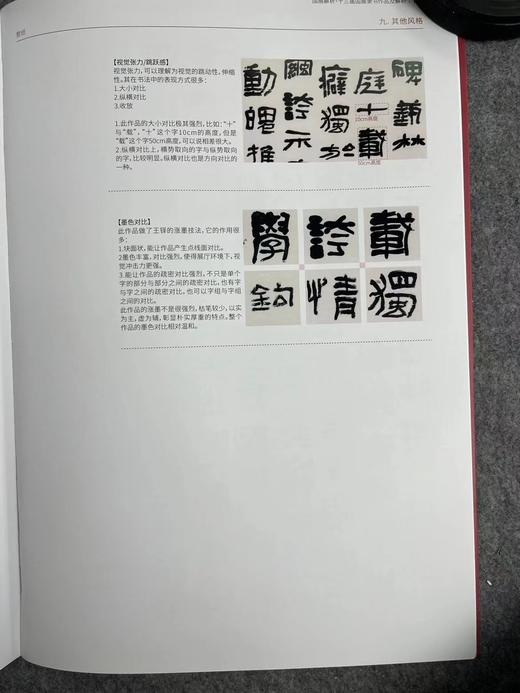 国展解析·十三届国展隶书作品及解析
九. 其他风格
【视觉张力/跳跃感】
视觉张力,可以理解为视觉的跳动性,伸缩
性。其在书法中的表现方式很多:
1.大小对比
2.纵横对比
3.收放
1.此作品的大小对比极其强烈,比如:“十”
与“载”,“十”这个字10cm的高度,但是
“载”这个字50cm高度,可以说相差很大。
2.纵横对比上,横势取向的字与纵势取向
的字,比较明显。纵横对比也是方向对比的
一种。
碑
林
庭
十
載
10cm高度
50cm高度
癖
獨
於
誇
示
動
【墨色对比】
此作品做了王铎的涨墨技法,它的作用很
多:
1.块面状,能让作品产生点线面对比。
2墨色丰富,对比强烈,使得展厅环境下,视
觉冲击力更强。
3.能让作品的疏密对比强烈,不只是单个
字的部分与部分之间的疏密对比,也有字
与字之间的疏密对比,也可以字组与字组
之间的对比。
此作品的涨墨不是很强烈,枯笔较少,以实
为主,虚为辅,彰显朴实厚重的特点。整个
作品的墨色对比相对温和。
學 誇 載
鈎 情 獨